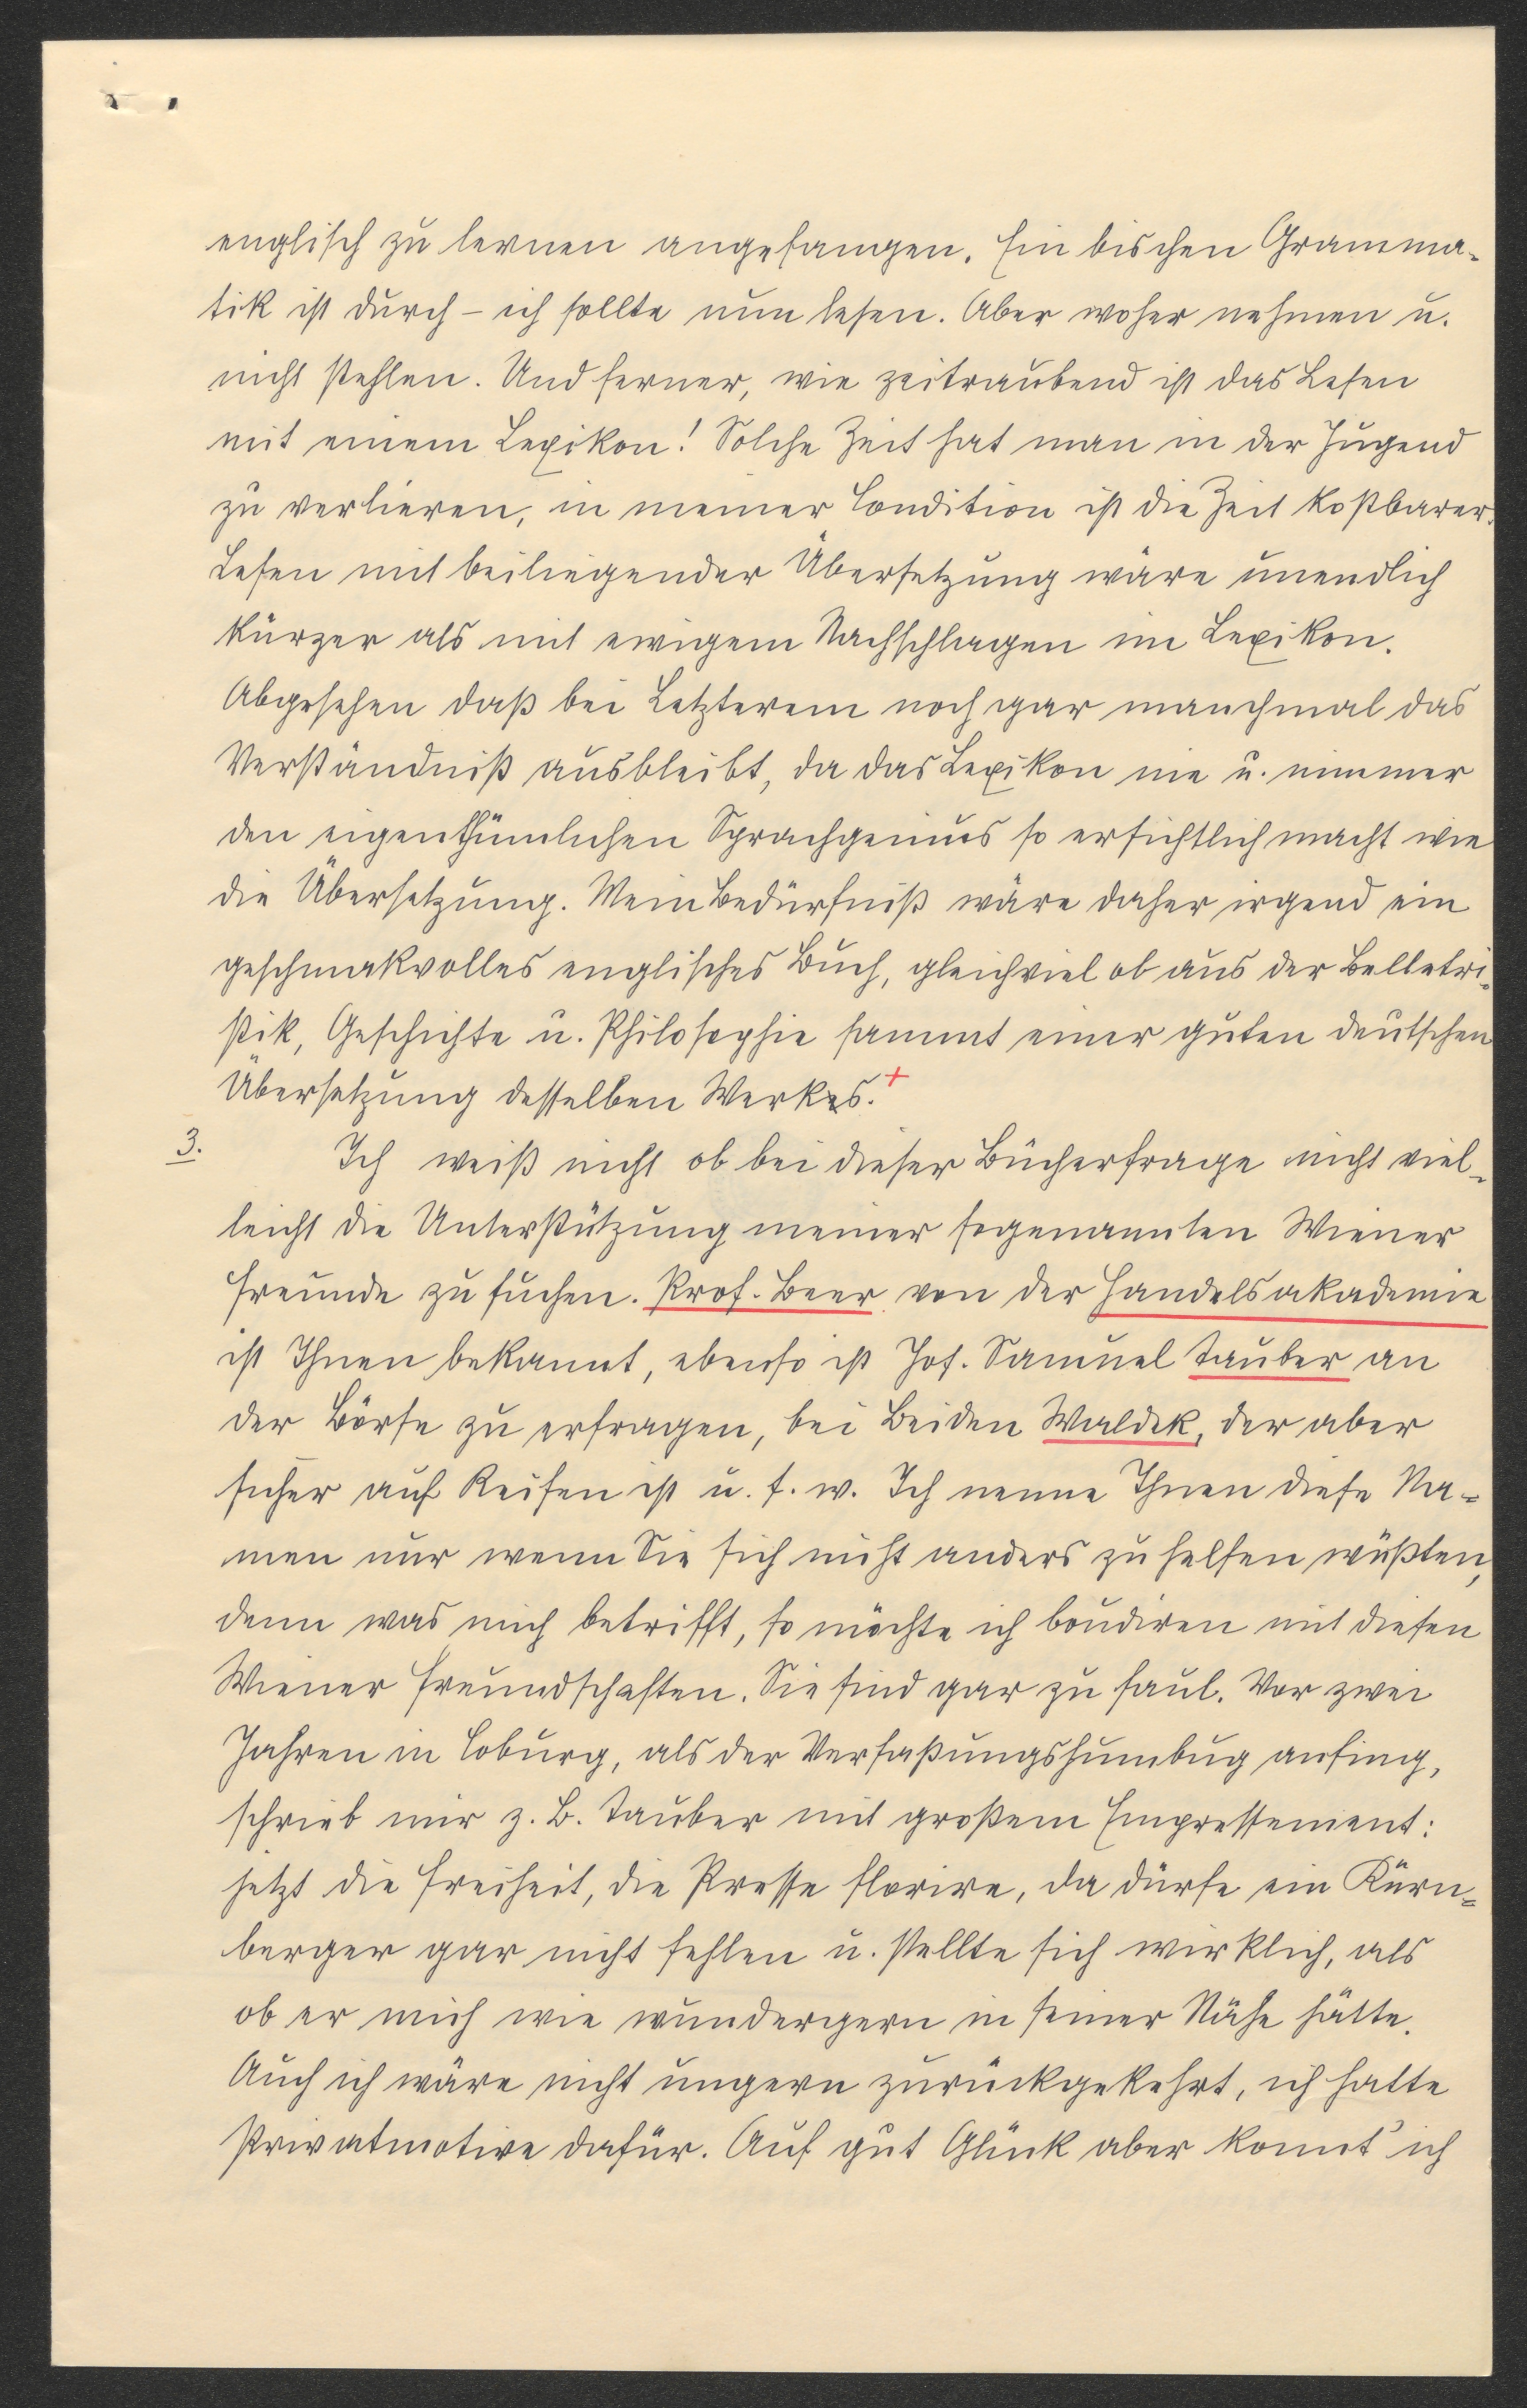 englisch zu lernen angefangen. Ein bischen Gramma-
tik ist durch – ich sollte nun lesen. Aber woher nehmen u.
nicht stehlen. Und ferner, wie zeitraubend ist das Lesen
mit einem Lexikon! Solche Zeit hat man in der Jugend
zu verlieren, in meiner Condition ist die Zeit kostbarer.
Lesen mit beiliegender Übersetzung wäre unendlich
kürzer als mit ewigem Nachschlagen im Lexikon.
Abgesehen daß bei Letzterem noch gar manchmal das
Verständniß ausbleibt, da das Lexikon nie u. nimmer
den eigenthümlichen Sprachgenius so ersichtlich macht wie
die Übersetzung. Mein Bedürfniß wäre daher irgend ein
geschmakvolles englisches Buch, gleichviel ob aus der Belletri-
stik, Geschichte u. Philosophie sammt einer guten deutschen
Übersetzung desselben Werkes.+
3. Ich weiß nicht ob bei dieser Bücherfrage nicht viel-
leicht die Unterstützung meiner sogenannten Wiener
Freunde zu suchen. Prof. Beer von der Handelsakademie
ist Ihnen bekannt, ebenso ist Jos. Samuel Tauber an
der Börse zu erfragen, bei Beiden Waldek, der aber
sicher auf Reisen ist u. s. w. Ich nenne Ihnen diese Na-
men nur wenn Sie sich nicht anders zu helfen wüßten,
denn was mich betrifft, so möchte ich boudiren mit diesen
Wiener Freundschaften. Sie sind gar zu faul. Vor zwei
Jahren in Coburg, als der Verfaßungshumbug anfing,
schrieb mir z. B. Tauber mit großem Empressement:
jetzt die Freiheit, die Presse florire, da dürfe ein Kürn-
berger gar nicht fehlen u. stellte sich wirklich, als
ob er mich wie wundergern in seiner Nähe hätte.
Auch ich wäre nicht ungern zurückgekehrt, ich hatte
Privatmotive dafür. Auf gut Glück aber konnt' ich